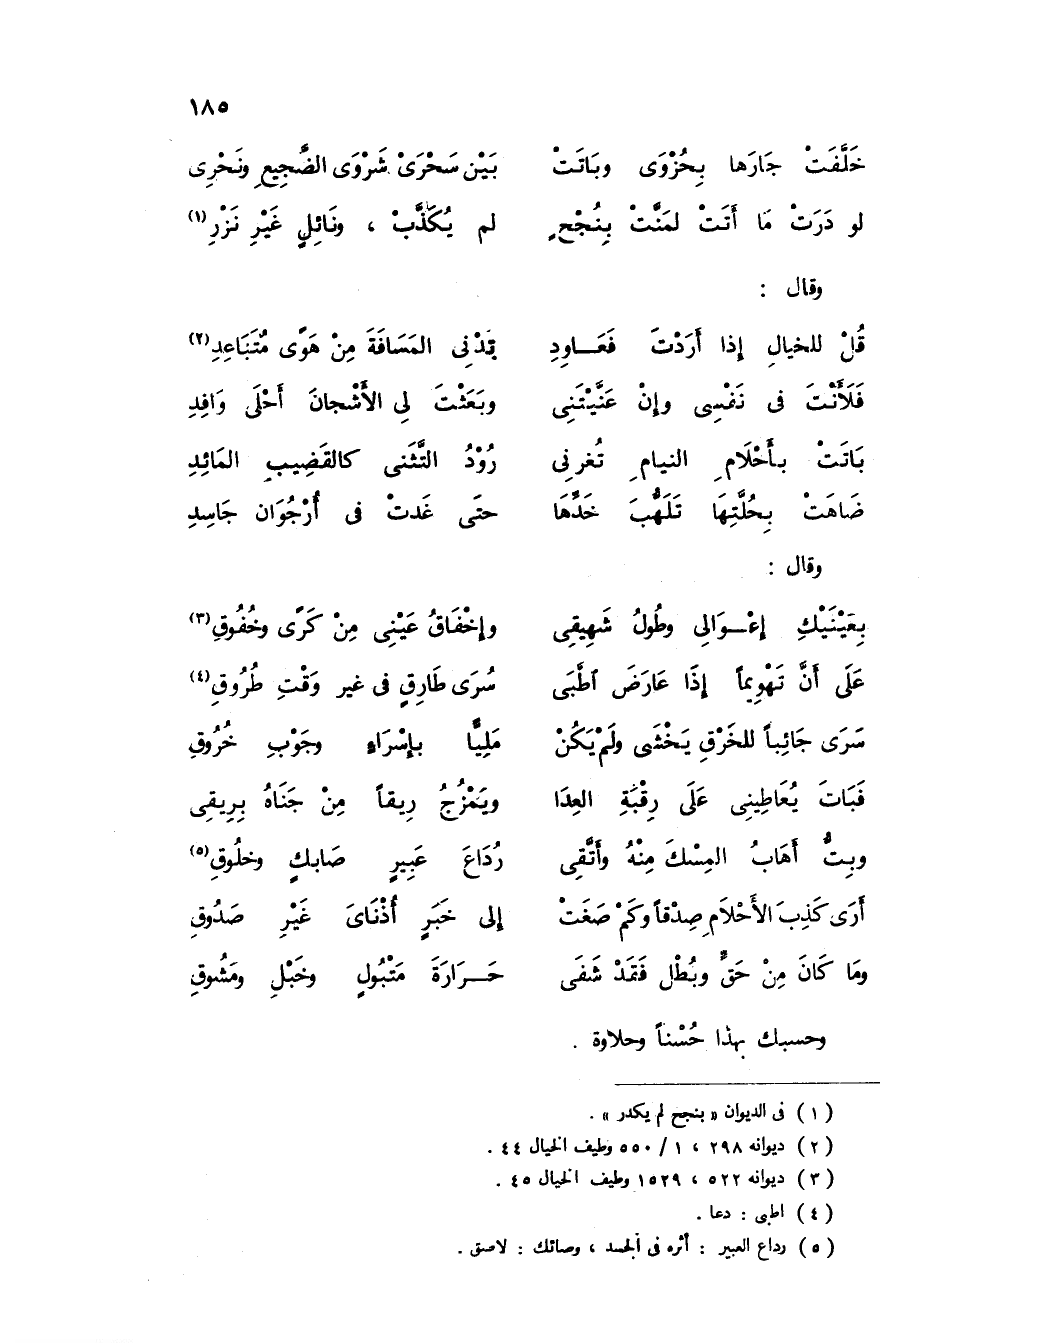 ١٨٥
خَلَّفَتْ جَارَها بِحُزْوَى وبَاتَتْ بَيْن سَحْرَىْ شَرْوَى الضَّجِيعِ ونَحْرِى
لو دَرَتْ مَا أَتَتْ لمَنَّتْ بِنُجْحٍ لم يُكَذَّبْ ، ونَائِلٍ غَيْرِ نَزْرِ (١)
وقال :
قُلْ للخيالِ إذا أَرَدْتَ فَعَــاودِ تُدْنِى المَسَافَةَ مِنْ هَوًى مُتَبَاعِدِ (٢)
فَلَأَنْتَ فى نَفْسِى وإنْ عَنَّيْتَنِى وبَعَثْتَ لِى الأَشْجانَ أَحْلَى وَافِدِ
بَاتَتْ بأَحْلَامِ النيامِ تُغرنِى رُوْدُ التَّثَنى كالقَضِيبِ المَائِدِ
ضَاهَتْ بِحُلَّتِهَا تَلَهُّبَ خَدِّهَا حتَى غَدتْ فى أُرْجُوَان جَاسِدِ
وقال :
بِعَيْنَيْكِ إعْــوَالِى وطُولُ شَهِيقِى وإخْفَاقُ عَيْنِى مِنْ كَرًى وخُفُوقِ (٣)
عَلَى أَنَّ تَهْوِيماً إذَا عَارَضَ اَطَّبَى سُرَى طَارِقٍ فى غير وَقْتِ طُرُوقِ (٤)
سَرَى جَائِباً للخَرْقِ يَخْشَى ولَمْ يَكُنْ مَلِيًّا بإسْرَاءِ وجَوْبِ خُرُوقِ
فَبَاتَ يُعَاطِينِى عَلَى رِقْبَةِ العِدَا ويَمْزُجُ رِيقاً مِنْ جَنَاهُ بِرِيقِى
وبِتُّ أَهَابُ المِسْكَ مِنْهُ وأَتَّقِى رُدَاعَ عَبِيرٍ صَابكٍ وخلُوقِ (٥)
أرَى كَذِبَ الأَحْلَامِ صِدْقاً وكَمْ صَغَتْ إلى خَبَرٍ أُذْنَاىَ غَيْرِ صَدُوقِ
ومَا كَانَ مِنْ حَقٍّ وبُطْل فَقَدْ شَفَى حَــرَارَةَ مَتْبُولٍ وخَبْلِ ومَشُوقِ
وحسبك بهذا حُسْناً وحلاوة .
(١) فى الديوان « بنجح لم يكدر » .
(٢) ديوانه ٢٩٨ ، ١ / ٥٥٠ وطيف الخيال ٤٤ .
(٣) ديوانه ٥٢٢ ، ١٥٢٩ وطيف الخيال ٤٥ .
(٤) اطبى : دعا .
(٥) رداع العبير : أثره فى الجسد ، وصائك : لاصق .